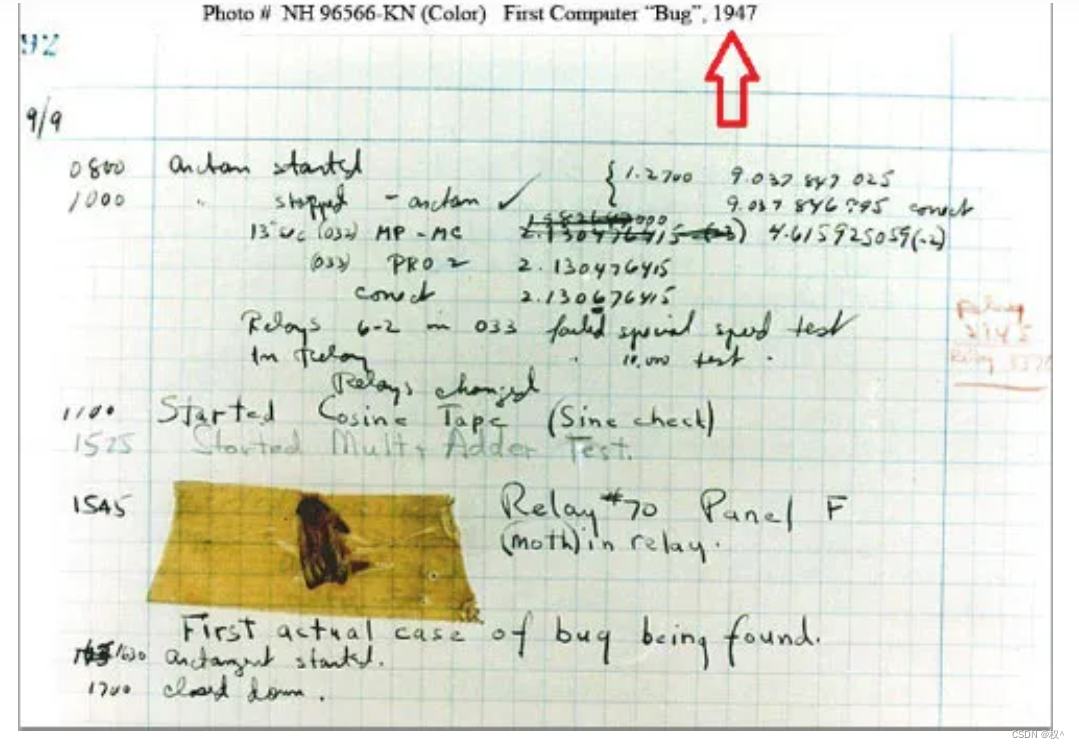 Photo # NH 96566-KN (Color) First Computer “Bug”, 1947
92
9/9
0800 arctan started
1000 " stopped - arctan ✓
{ 1.2700 9.037 847 025
9.037 846 795 correct
000
13" uc (032) MP - MC 2.130476415 (-3) 4.615925059(-2)
(033) PRO 2 2.130476415
correct 2.130676415
Relays 6-2 in 033 failed special speed test
In Relay " 10,000 test .
Relays changed
Relay
2145
Relay 3370
1100 Started Cosine Tape (Sine check)
1525 Started Mult + Adder Test.
1545 Relay #70 Panel F
(moth) in relay.
First actual case of bug being found.
1630 arctangent started.
1700 closed down.
CSDN